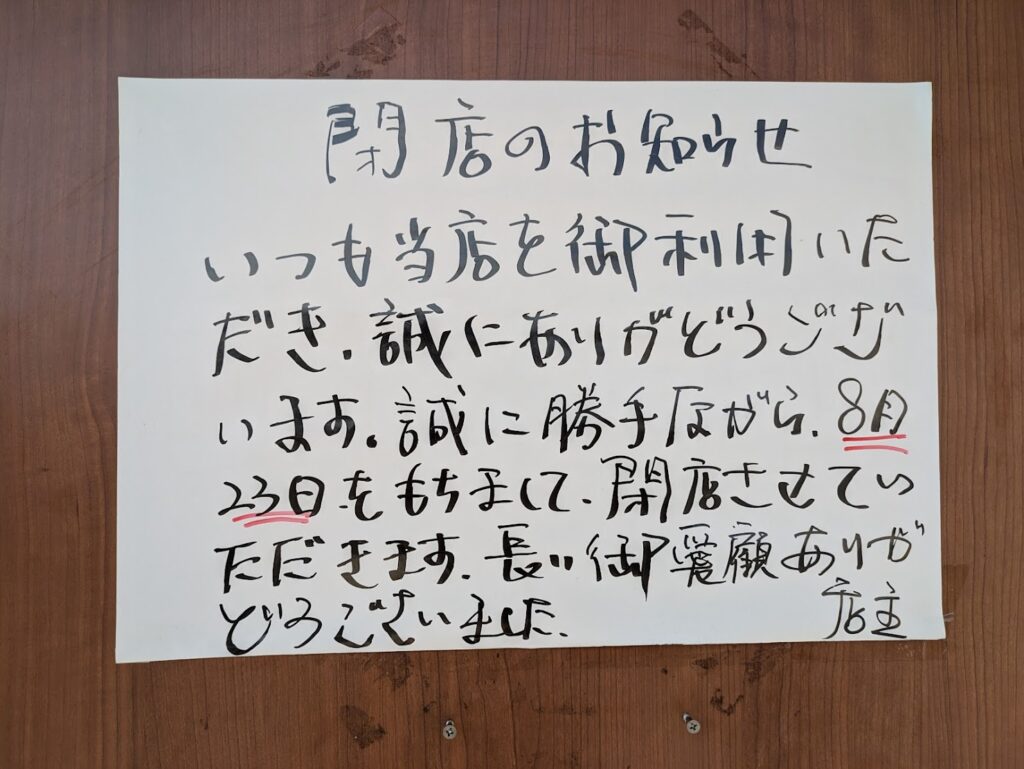 閉店のお知らせ
いつも当店を御利用いた
だき、誠にありがどうござ
います。誠に勝手ながら、8月
23日をもちまして、閉店させてい
ただきます。長い御愛顧ありが
どうございました。
店主